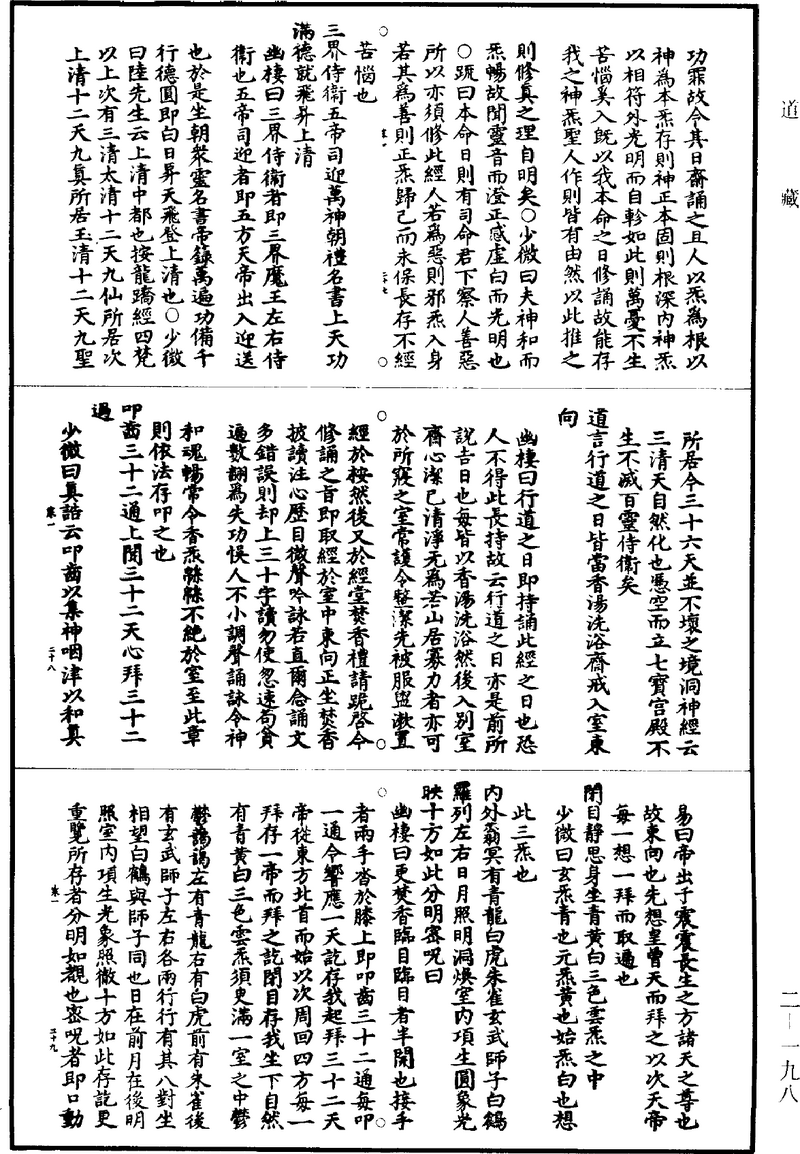 道藏
功罪故令其日齋誦之且人以炁為根以
神為本炁存則神正本固則根深內神炁
以相符外光明而自軫如此則萬憂不生
苦惱奚入旣以我本命之日修誦故能存
我之神炁聖人作則皆有由然以此推之
則修真之理自明矣○少微曰夫神和而
炁暢故聞靈音而澄正感虛白而光明也
○䟽曰本命日則有司命君下察人善惡
所以亦須修此經人若為惡則邪炁入身
若其為善則正炁歸己而永保長存不經
苦惱也
三界侍衛五帝司迎萬神朝禮名書上天功
滿德就飛昇上清
幽棲曰三界侍衛者即三界魔王左右侍
衛也五帝司迎者即五方天帝出入迎送
也於是坐朝衆靈名書帝錄萬遍功備千
行德圓即白日昇天飛登上清也○少微
曰陸先生云上清中都也按龍蹻經四梵
以上次有三清太清十二天九仙所居次
上清十二天九真所居玉清十二天九聖
所居今三十六天並不壞之境洞神經云
三清天自然化也憑空而立七寶宮殿不
生不滅百靈侍衛矣
道言行道之日皆當香湯洗浴齋戒入室東
向
幽棲曰行道之日即持誦此經之日也恐
人不得此長持故云行道之日亦是前所
說吉日也每皆以香湯洗浴然後入別室
齋心潔己清淨无為若山居寡力者亦可
於所寢之室常護令整潔先被服盥漱置
經於桉然後又於經堂焚香禮請跪啓今
修誦之旨即取經於室中東向正坐焚香
披讀注心歷目微聲吟詠若直爾念誦文
多錯誤則却上三十字讀勿使忽速苟貪
遍數翻為失功悞人不小調聲誦詠令神
和魂暢常令香炁緜緜不絕於室至此章
則依法存叩之也
叩齒三十二通上聞三十二天心拜三十二
過
少微曰真誥云叩齒以集神咽津以和真
卷一
二十八
易曰帝出于震震長生之方諸天之尊也
故東向也先想皇曾天而拜之以次天帝
每一想一拜而取遍也
閉目靜思身坐青黃白三色雲炁之中
少微曰玄炁青也元炁黃也始炁白也想
此三炁也
內外蓊冥有青龍白虎朱雀玄武師子白鶴
羅列左右日月照明洞煥室內項生圓象光
映十方如此分明密呪曰
幽棲曰更焚香臨目臨目者半開也接手
者兩手沓於膝上即叩齒三十二通每叩
一通令響應一天訖存我起拜三十二天
帝從東方北首而始以次周回四方每一
拜存一帝而拜之訖閉目存我坐下自然
有青黃白三色雲炁須臾滿一室之中鬱
鬱藹藹左有青龍右有白虎前有朱雀後
有玄武師子左右各兩行行有其八對坐
相望白鶴與師子同也日在前月在後明
照室內項生光象照徹十方如此存訖更
重覽所存者分明如覩也密呪者即口動
卷一
二十九
二－一九八